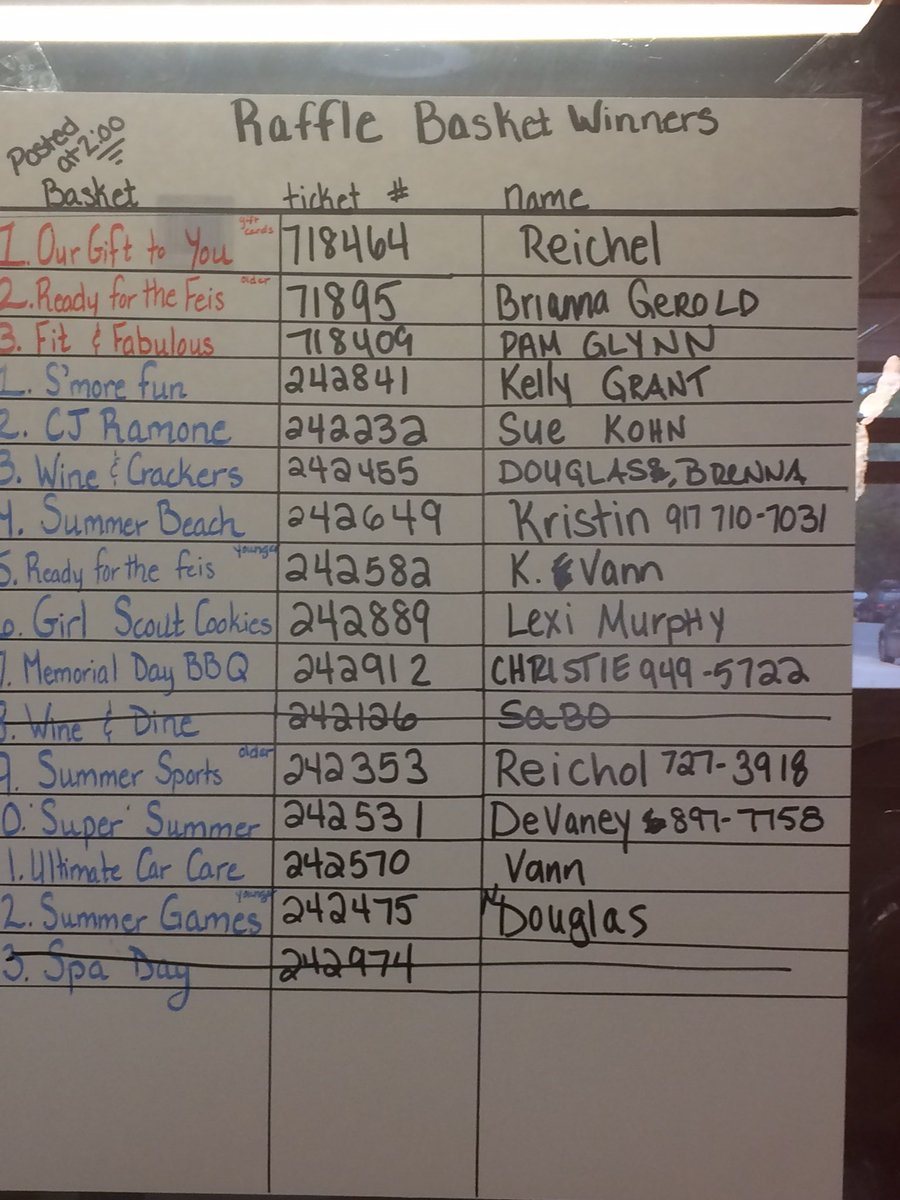 Raffle Basket Winners
Posted at 2:00
Basket ticket # name
1. Our Gift to You gift cards 718464 Reichel
2. Ready for the Feis older 71895 Brianna GEROLD
3. Fit & Fabulous 718409 PAM GLYNN
1. S'more fun 242841 Kelly GRANT
2. CJ Ramone 242232 Sue KOHN
3. Wine & Crackers 242455 DOUGLAS, BRENNA
4. Summer Beach 242649 Kristin 917 710-7031
5. Ready for the feis younger 242582 K. Vann
6. Girl Scout Cookies 242889 Lexi Murphy
7. Memorial Day BBQ 242912 CHRISTIE 949-5722
8. Wine & Dine 242126 SaBO
9. Summer Sports older 242353 Reichol 727-3918
0. "Super" Summer 242531 DeVaney 897-7758
1. Ultimate Car Care 242570 Vann
2. Summer Games younger 242475 Douglas
3. Spa Day 242974